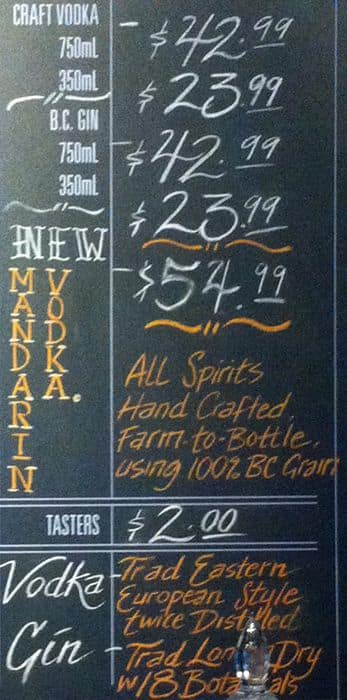 CRAFT VODKA
750mL - $42.99
350mL $23.99
B.C. GIN
750mL - $42.99
350mL $23.99
NEW - $54.99
MANDARIN
VODKA.
ALL Spirits
Hand Crafted.
Farm-to-Bottle.
using 100% BC Grain
TASTERS $2.00
Vodka - Trad Eastern
European Style
twice Distilled
Gin - Trad London Dry
w/18 Botanicals